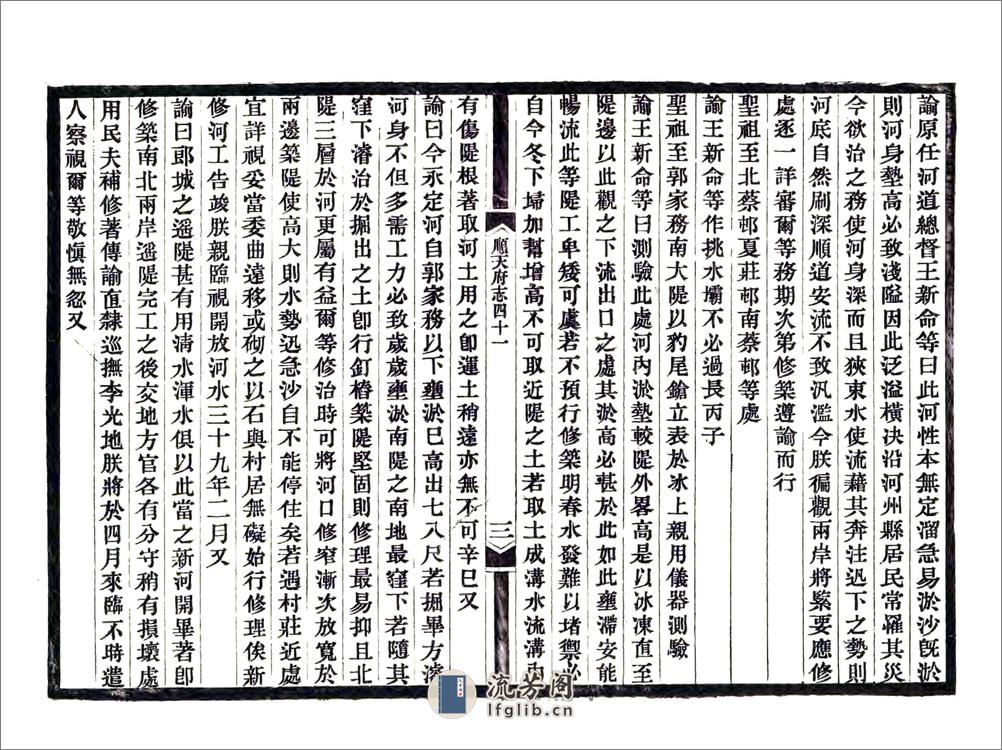 諭原任河道總督王新命等曰此河性本無定溜急易淤沙旣淤
則河身墊高必致淺隘因此泛溢橫決沿河州縣居民常罹其災
今欲治之務使河身深而且狹束水使流藉其奔注迅下之勢則
河底自然刷深順道安流不致汎濫今朕徧觀兩岸將緊要應修
處逐一詳審爾等務期次第修築遵諭而行
聖祖至北蔡邨夏莊邨南蔡邨等處
諭王新命等作挑水壩不必過長丙子
聖祖至郭家務南大隄以豹尾鎗立表於冰上親用儀器測驗
諭王新命等曰測驗此處河內淤墊較隄外畧高是以冰凍直至
隄邊以此觀之下流出口之處其淤高必甚於此如此壅滯安能
暢流此等隄工卑矮可虞若不預行修築明春水發難以堵禦必
自今冬下埽加幫增高不可取近隄之土若取土成溝水流溝內
順天府志四十一
三
有傷隄根著取河土用之卽運土稍遠亦無不可辛巳又
諭曰今永定河自郭家務以下壅淤已高出七八尺若掘畢方濬
河身不但多需工力必致歲歲壅淤南隄之南地最窪下若隨其
窪下濬治於掘出之土卽行釘樁築隄堅固則修理最易抑且北
隄三層於河更屬有益爾等修治時可將河口修窄漸次放寬於
兩邊築隄使高大則水勢迅急沙自不能停住矣若遇村莊近處
宜詳視妥當委曲遠移或砌之以石與村居無礙始行修理俟新
修河工告竣朕親臨視開放河水三十九年二月又
諭曰郎城之遥隄甚有用清水渾水俱以此當之新河開畢著卽
修築南北兩岸遥隄完工之後交地方官各有分守稍有損壞處
用民夫補修著傳諭直隸巡撫李光地朕將於四月來臨不時遣
人察視爾等敬愼無忽又
流芳閣
lfglib.cn